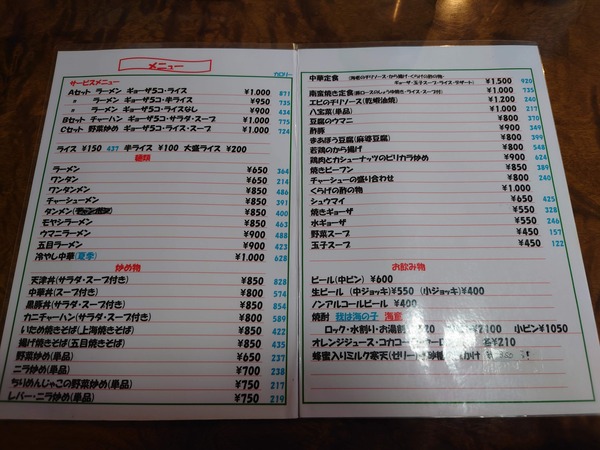 メニュー
カロリー
サービスメニュー
Aセット ラーメン ギョーザ5コ・ライス ¥1.000 871
〃 ラーメン ギョーザ5コ・半ライス ¥950 735
〃 ラーメン ギョーザ5コ・ライスなし ¥900 434
Bセット チャーハン ギョーザ5コ・サラダ・スープ ¥1.000 775
Cセット 野菜炒め ギョーザ5コ・ライス・スープ ¥1.000 724
ライス ¥150 437 半ライス ¥100 大盛ライス ¥200
麺類
ラーメン ¥650 364
ワンタン ¥650 214
ワンタンメン ¥850 486
チャーシューメン ¥850 391
タンメン ¥850 400
モヤシラーメン ¥850 463
ウマニラーメン ¥900 488
五目ラーメン ¥900 423
冷やし中華(夏季) ¥1.000 628
炒め物
天津丼(サラダ・スープ付き) ¥850 828
中華丼(スープ付き) ¥850 574
黒豚丼(サラダ・スープ付き) ¥850 854
カニチャーハン(サラダ・スープ付き) ¥800 589
いため焼きそば(上海焼きそば) ¥850 422
揚げ焼きそば(五目焼きそば) ¥850 435
野菜炒め(単品) ¥650 237
ニラ炒め(単品) ¥700 238
ちりめんじゃこの野菜炒め(単品) ¥750 217
レバー・ニラ炒め(単品) ¥750 219
中華定食 ¥1.500 920
ギョーザ・玉子スープ・ライス・デザート)
南蛮焼き定食 ¥1.000 735
エビのチリソース(乾蝦油焼) ¥1.200 240
八宝菜(単品) ¥1.000
豆腐のウマニ ¥800
酢豚 ¥900
まあぼう豆腐(麻婆豆腐) ¥800
若鶏のから揚げ ¥800 548
鶏肉とカシューナッツのピリカラ炒め ¥900 624
焼きビーフン ¥850 389
チャーシューの盛り合わせ ¥800 240
くらげの酢の物 ¥1.000
シュウマイ ¥650 425
焼きギョーザ ¥550 328
水ギョーザ ¥550 246
野菜スープ ¥450 157
玉子スープ ¥450 122
お飲み物
ビール(中ビン) ¥600
生ビール (中ジョッキ)¥550 (小ジョッキ)¥400
ノンアルコールビール ¥400
焼酎 我は海の子 海童
ロック・水割り・お湯割 ¥2100 小ビン¥1050
オレンジジュース・コカコーラ ¥210
蜂蜜入りミルク寒天(ゼリー)